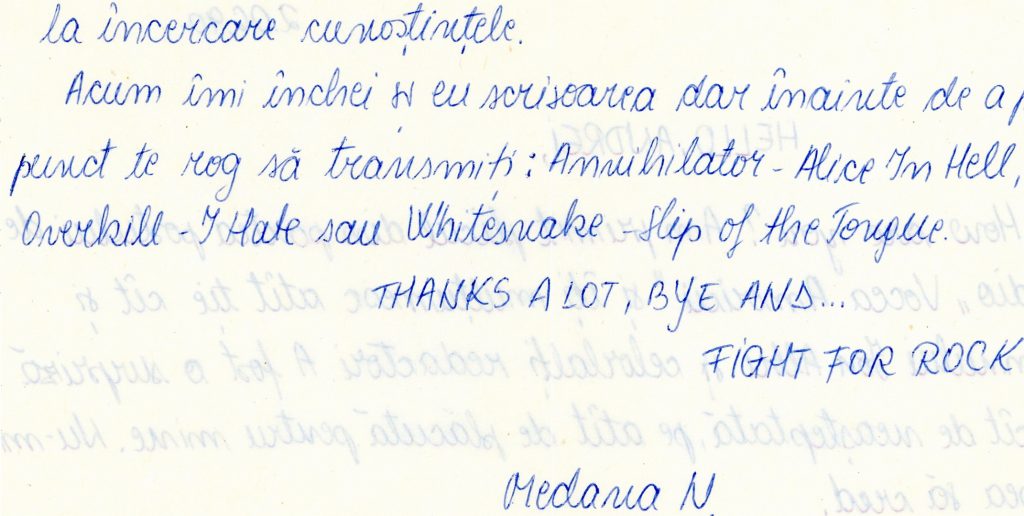 la încercare cunoștințele.
Acum îmi închei și eu scrisoarea dar înainte de a
punct te rog să transmiți: Annihilator - Alice In Hell,
Overkill - I Hate sau Whitesnake - Slip of the Tongue.
THANKS A LOT, BYE AND...
FIGHT FOR ROCK
Medana N.